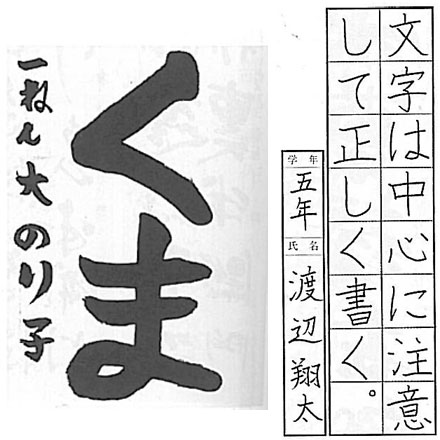 文字は中心に注意
して正しく書く。
学年
五年
氏名
渡辺翔太
くま
一ねん大のり子